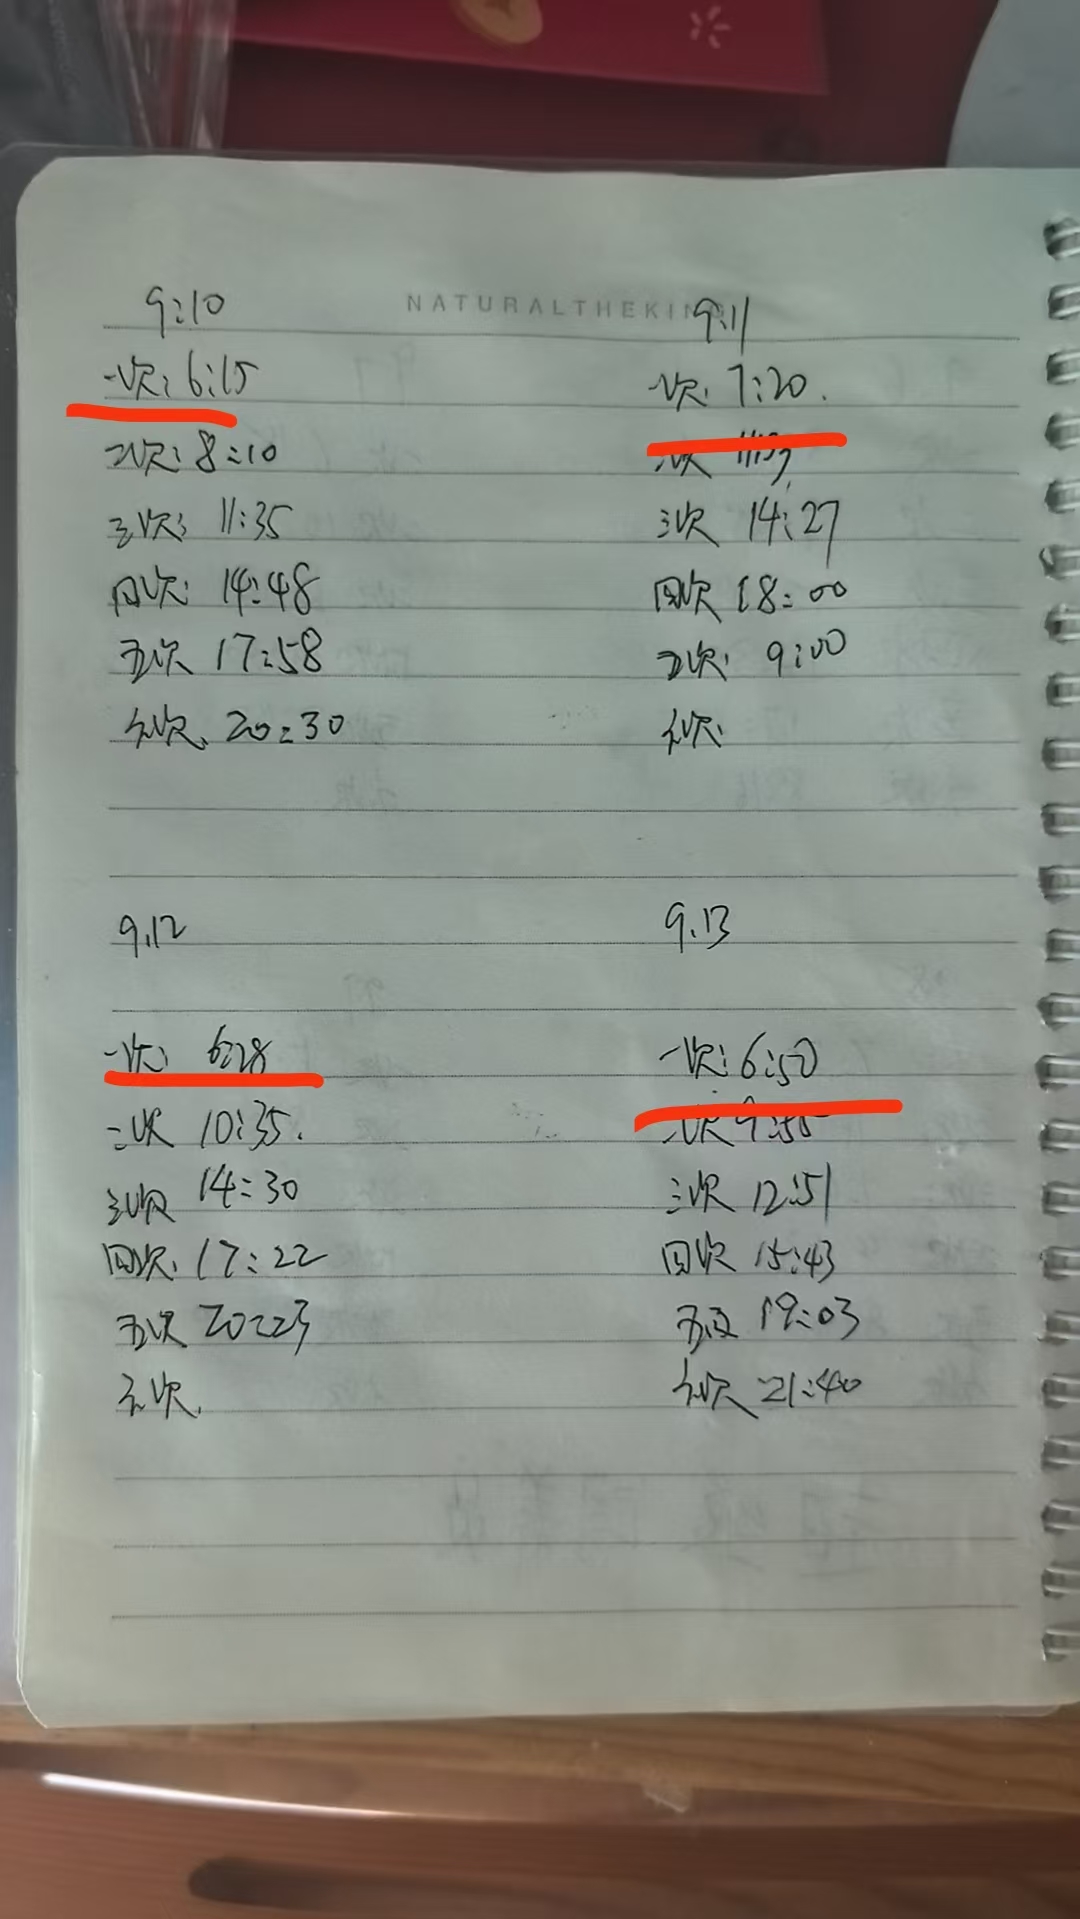 NATURALTHEKIN
9:10
一次: 6:15
二次: 8:10
三次: 11:35
四次: 14:48
五次 17:58
六次. 20:30
9.11
一次: 7:20.
二次
三次 14:27
四次 18:00
五次: 9:00
六次:
9.12
一次: 6:28
二次 10:35.
三次 14:30
四次. 17:22
五次 20:23
六次.
9.13
一次: 6:50
二次 9:50
三次 12:51
四次 15:43
五次 19:03
六次 21:40